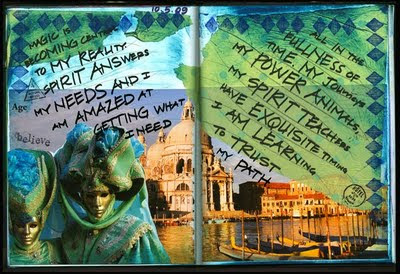 10.5.09
MAGIC IS
BECOMING CENTRAL
TO MY REALITY.
SPIRIT ANSWERS
MY NEEDS AND I
AM AMAZED AT
GETTING WHAT
I NEED
Age
believe
ALL IN THE
FULLNESS OF
TIME. MY JOURNEYS
MY POWER ANIMALS,
MY SPIRIT TEACHERS
HAVE EXQUISITE TIMING
I AM LEARNING
TO TRUST
MY PATH